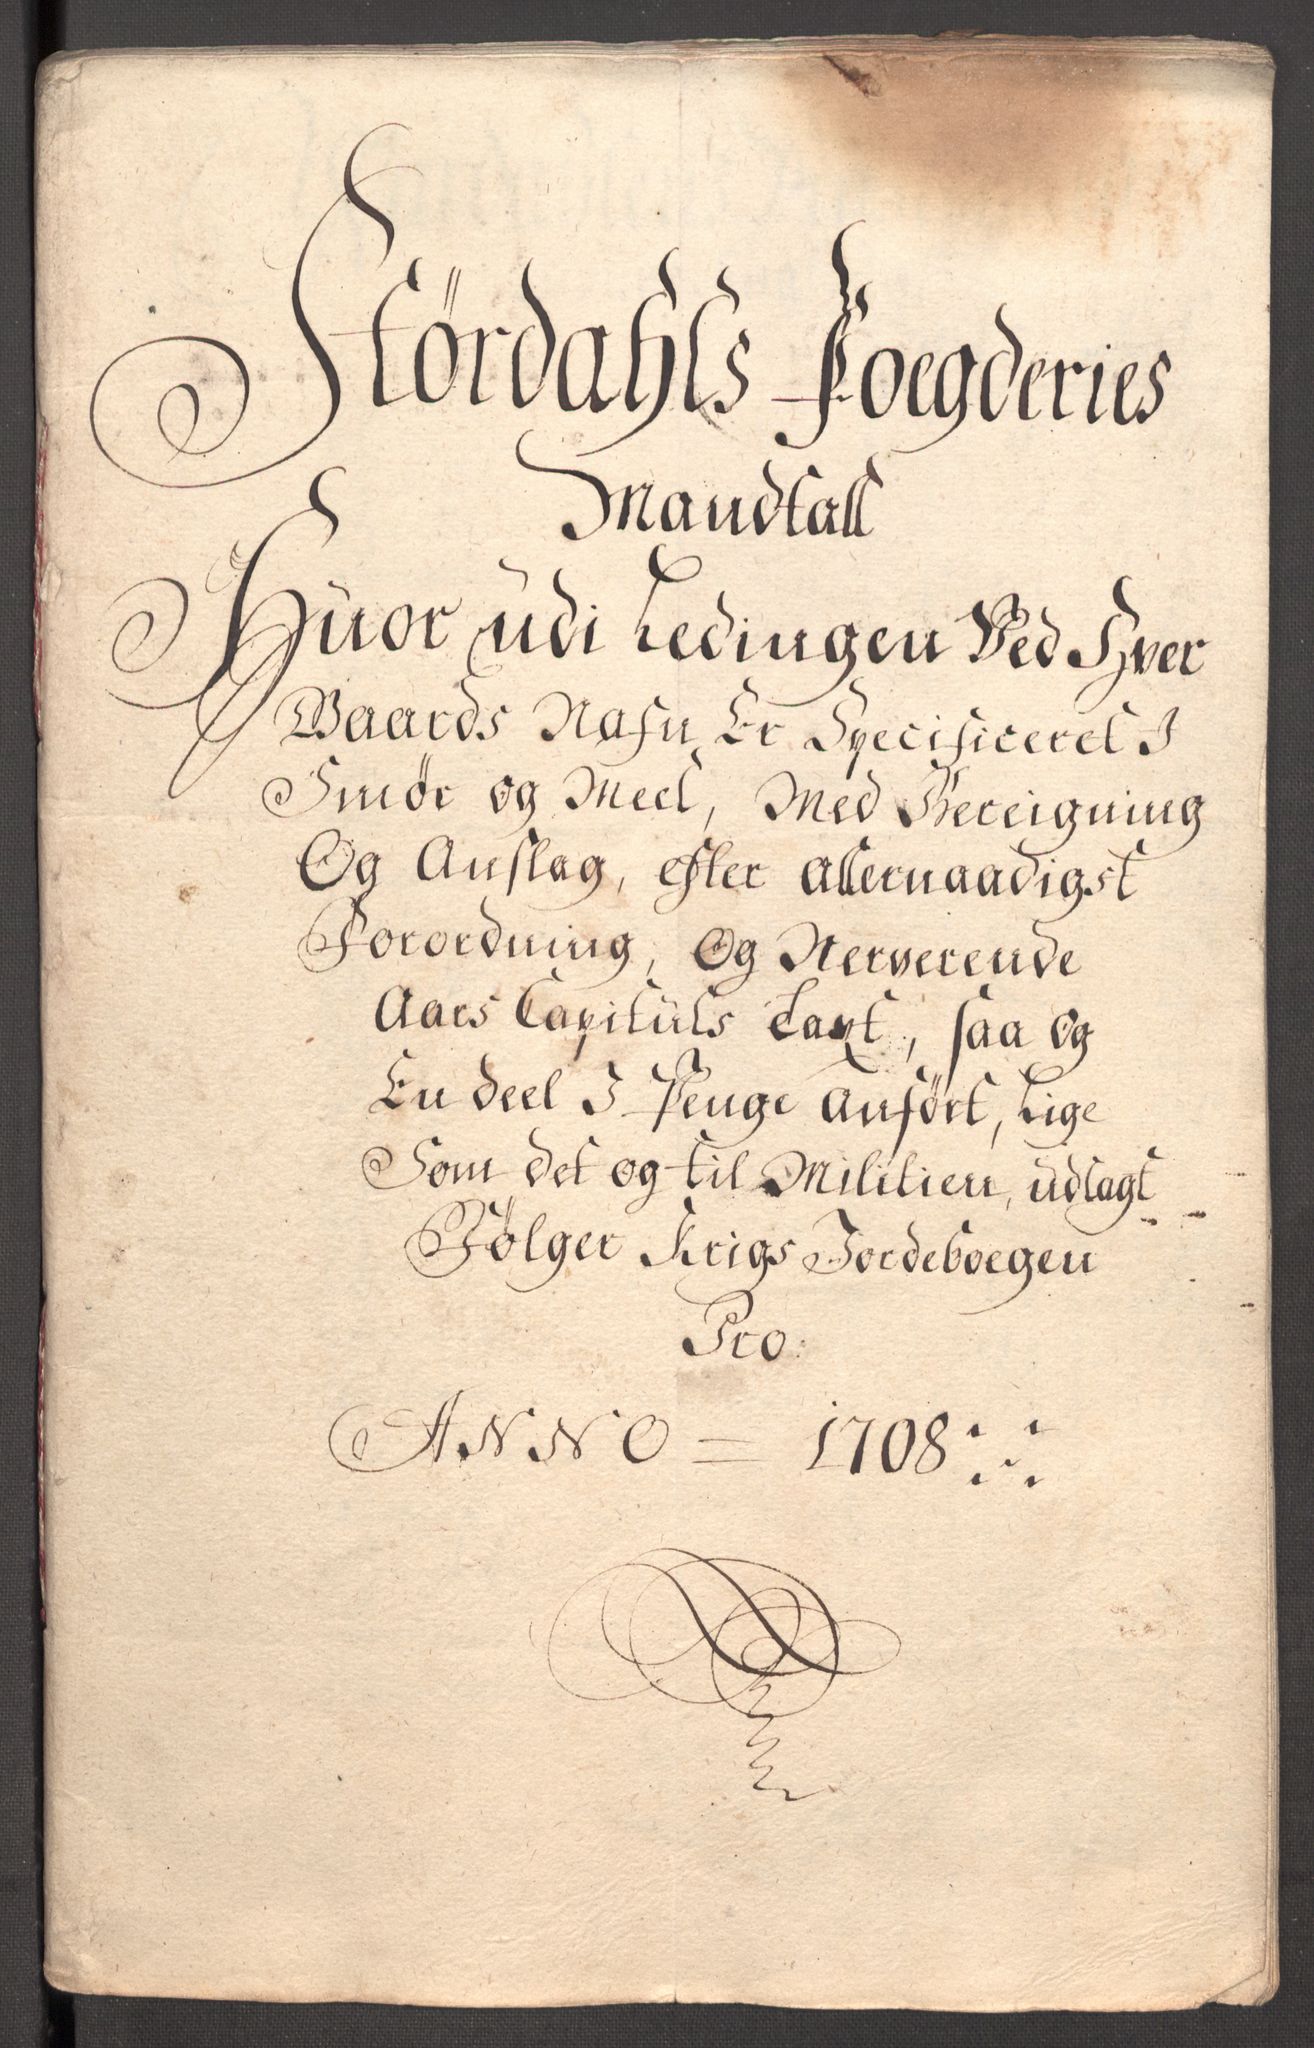 Stördahls Foegderies
Mandtall
Huor udi Ledingen Ved Hver
Gaards Nafn Er Specificeret I
Smör og Meel, Med Bereigning
Og Anslag, efter Allernaadigst
Forordning, Og Nerverende
Aars Capituls Taxt, saa og
En deel I Penge Anfört, Lige
Som det og til Militien, udlagt
Fölger Krigs Jordeboegen
Pro:
ANNO = 1708